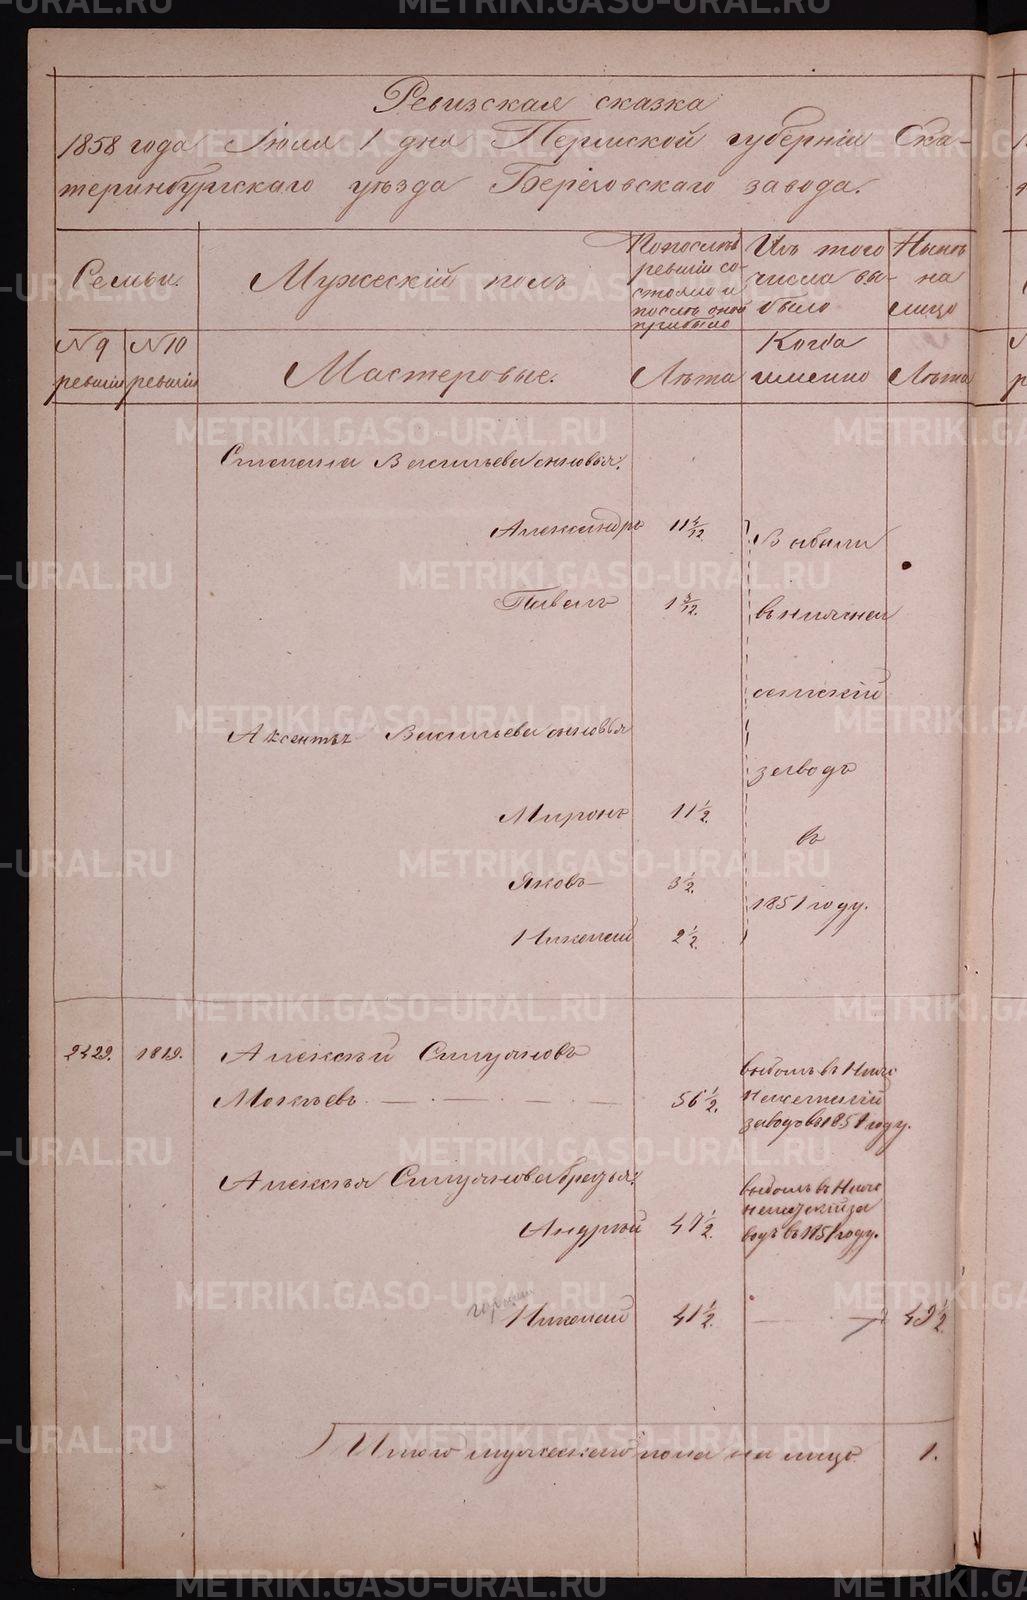 Ревизская сказка
1858 года Іюля 1 дня Пермской губерніи Ека-
теринбургскаго уѣзда Березовскаго завода.
Семьи.
Мужескій полъ
По послѣд
ревизіи со-
стояло и
послѣ оной
прибыло
Изъ того
числа вы-
было
Нынѣ
на
лицо
№ 9
ревизіи
№ 10
ревизіи
Мастеровые.
Лѣта
Когда
именно
Лѣта
Степана Васильева сыновья.
Александръ 11
Павелъ 1
Выбыли
сетскій
заводъ
въ
1851 году.
Аксентья Васильева сыновья
Миронъ 11 1/2.
Яковъ 3 1/2.
Николай 2 1/2.
2429. 1819. Алексѣй Силуановъ
Мокѣевъ 56 1/2.
выбылъ въ Ниж
неисетскій
заводъ въ 1851 году.
Алексѣя Силуанова братья:
Андрей 47 1/2.
выбылъ въ Ниж
неисетскій за
водъ въ 1851 году.
Николай 41 1/2. 49 1/2.
Итого мужескаго пола на лицо 1.
METRIKI.GASO-URAL.RU